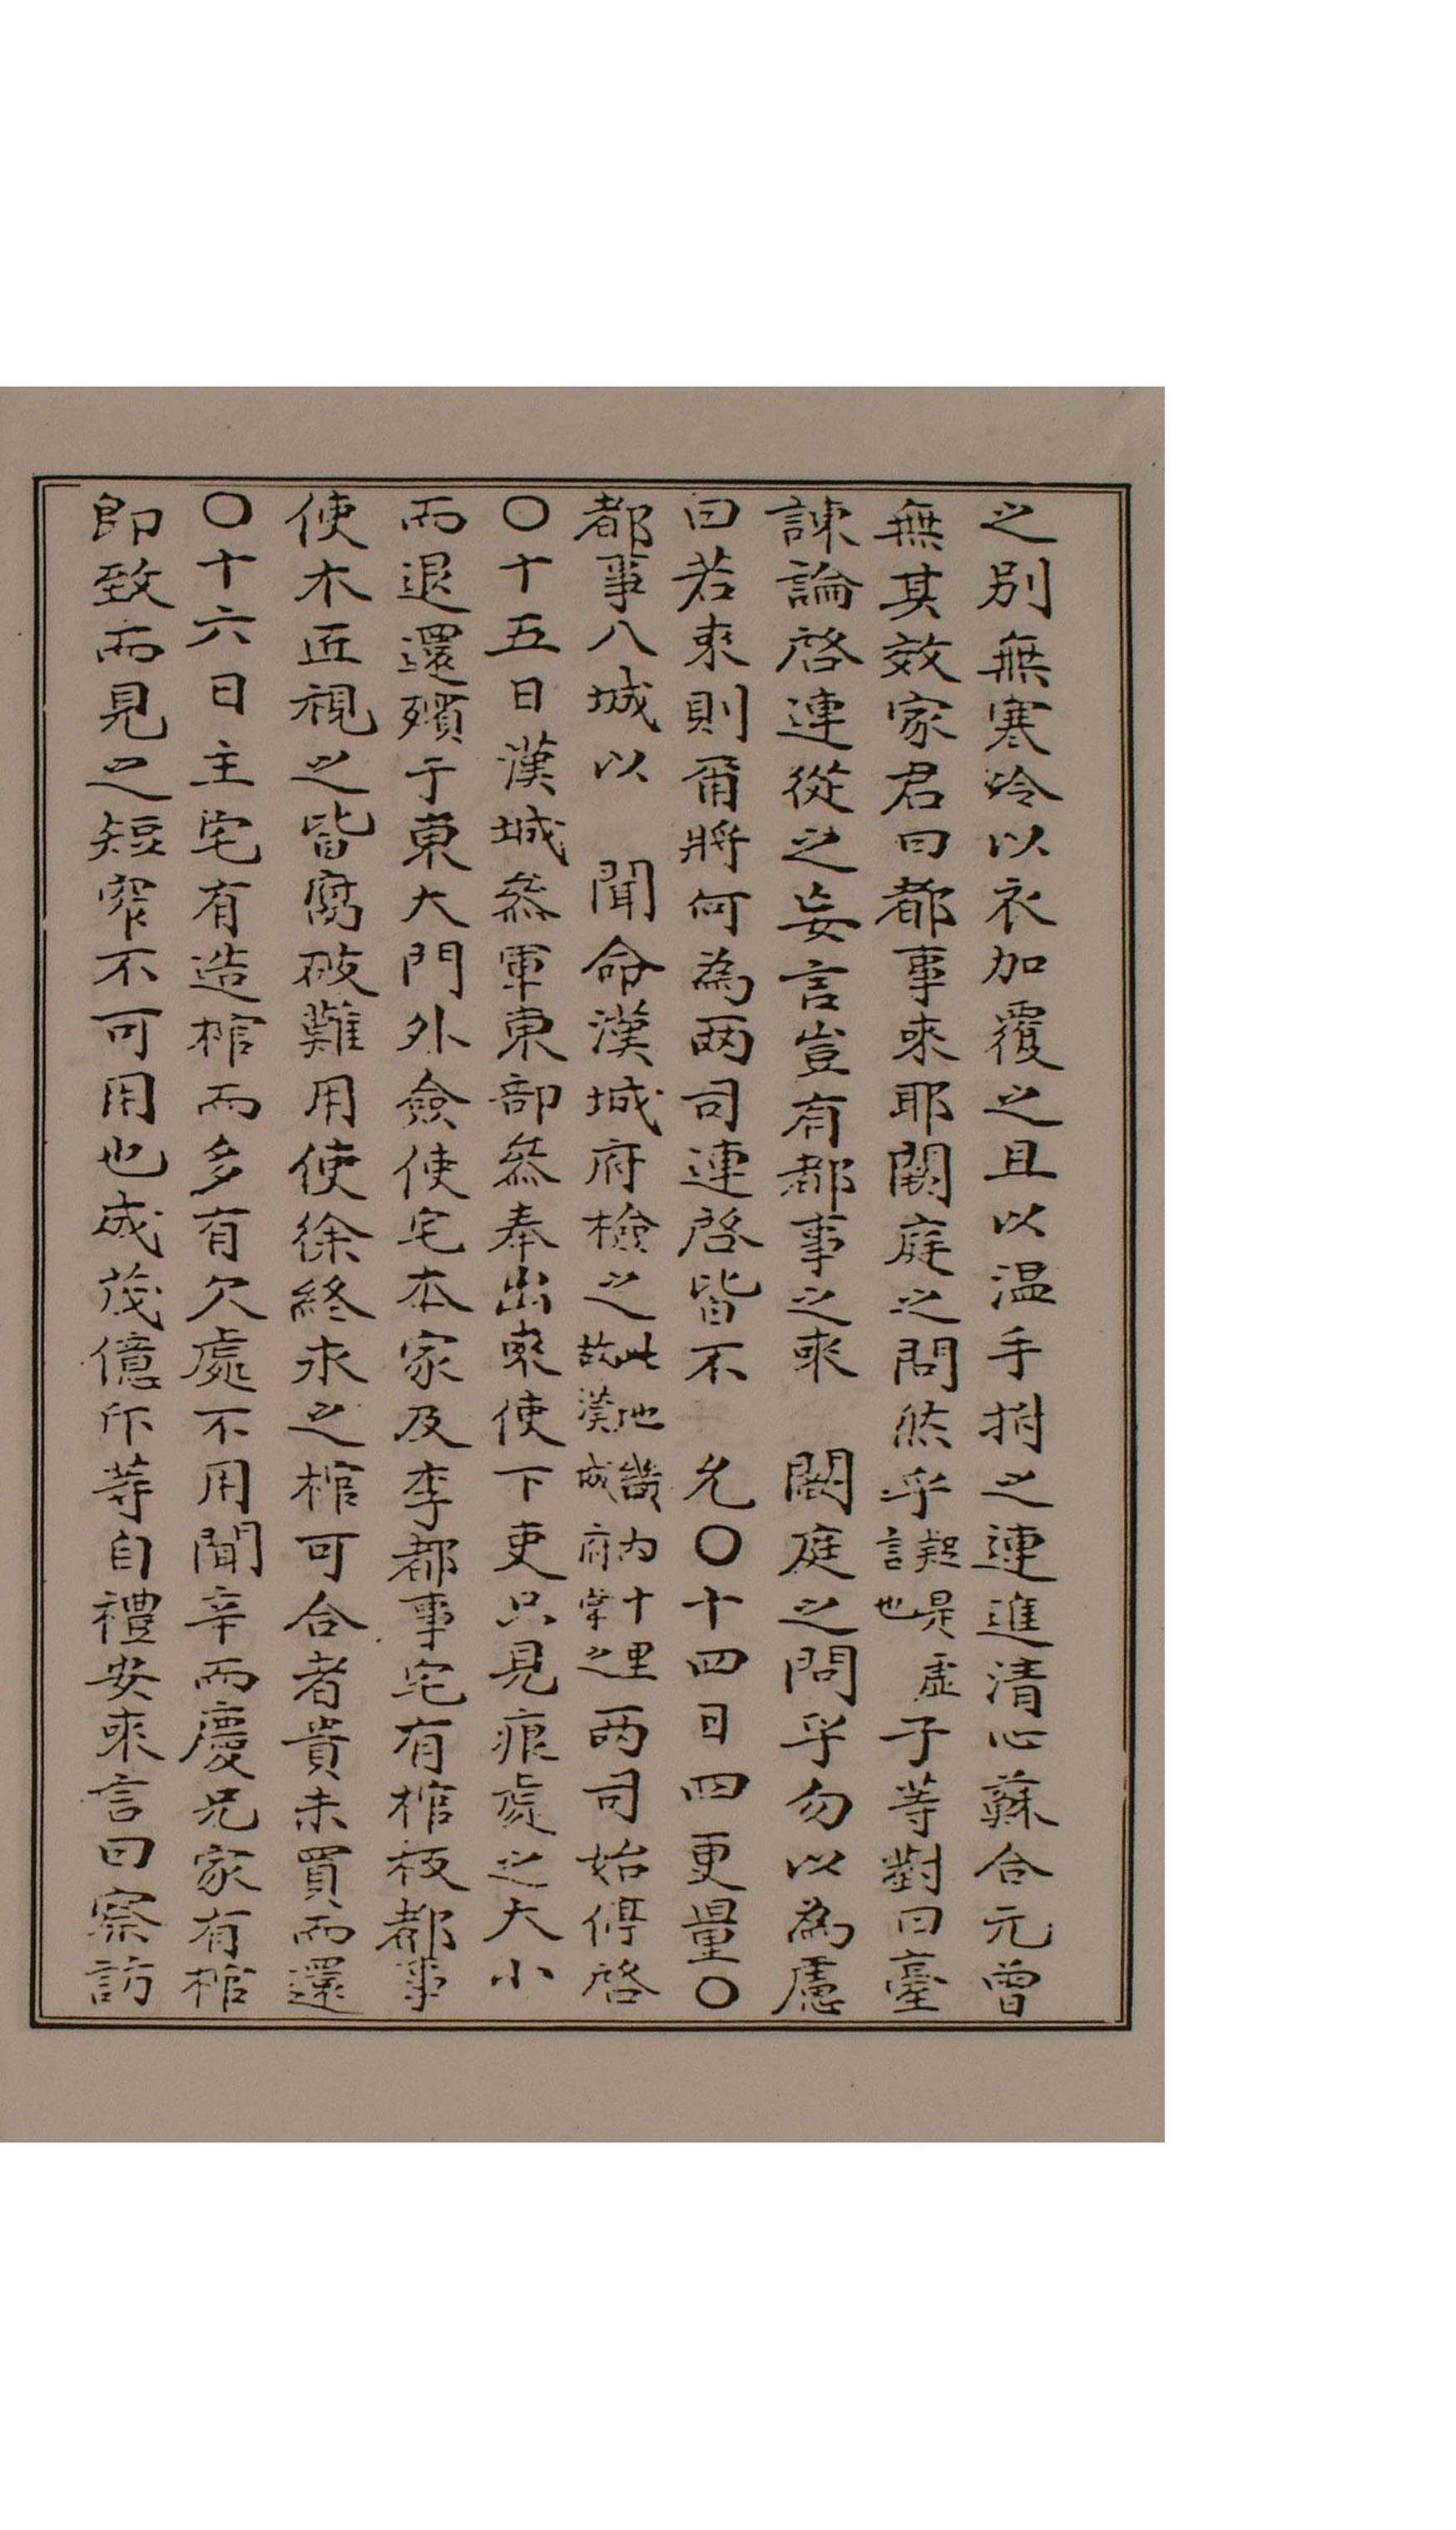 之別無寒冷以衣加覆之且以温手拊之連進清心蘇合元曾
無其效家君曰都事來耶闕庭之問然乎疑是虛言也子等對曰臺
諫論啓連從之妄言豈有都事之來　闕庭之問乎勿以為慮
曰若來則爾將何為兩司連啓皆不　允〇十四日四更量〇
都事入城以　聞命漢城府檢之此地畿內十里故漢城府掌之兩司始停啓
〇十五日漢城叅軍東部叅奉出來使下吏只見痕處之大小
而退還殯于東大門外僉使宅本家及李都事宅有棺板都事
使木匠視之皆腐破難用使徐終求之棺可合者貴未買而還
〇十六日主宅有造棺而多有欠處不用聞辛而慶兄家有棺
即致而見之短窄不可用也成茂億所等自禮安來言曰察訪